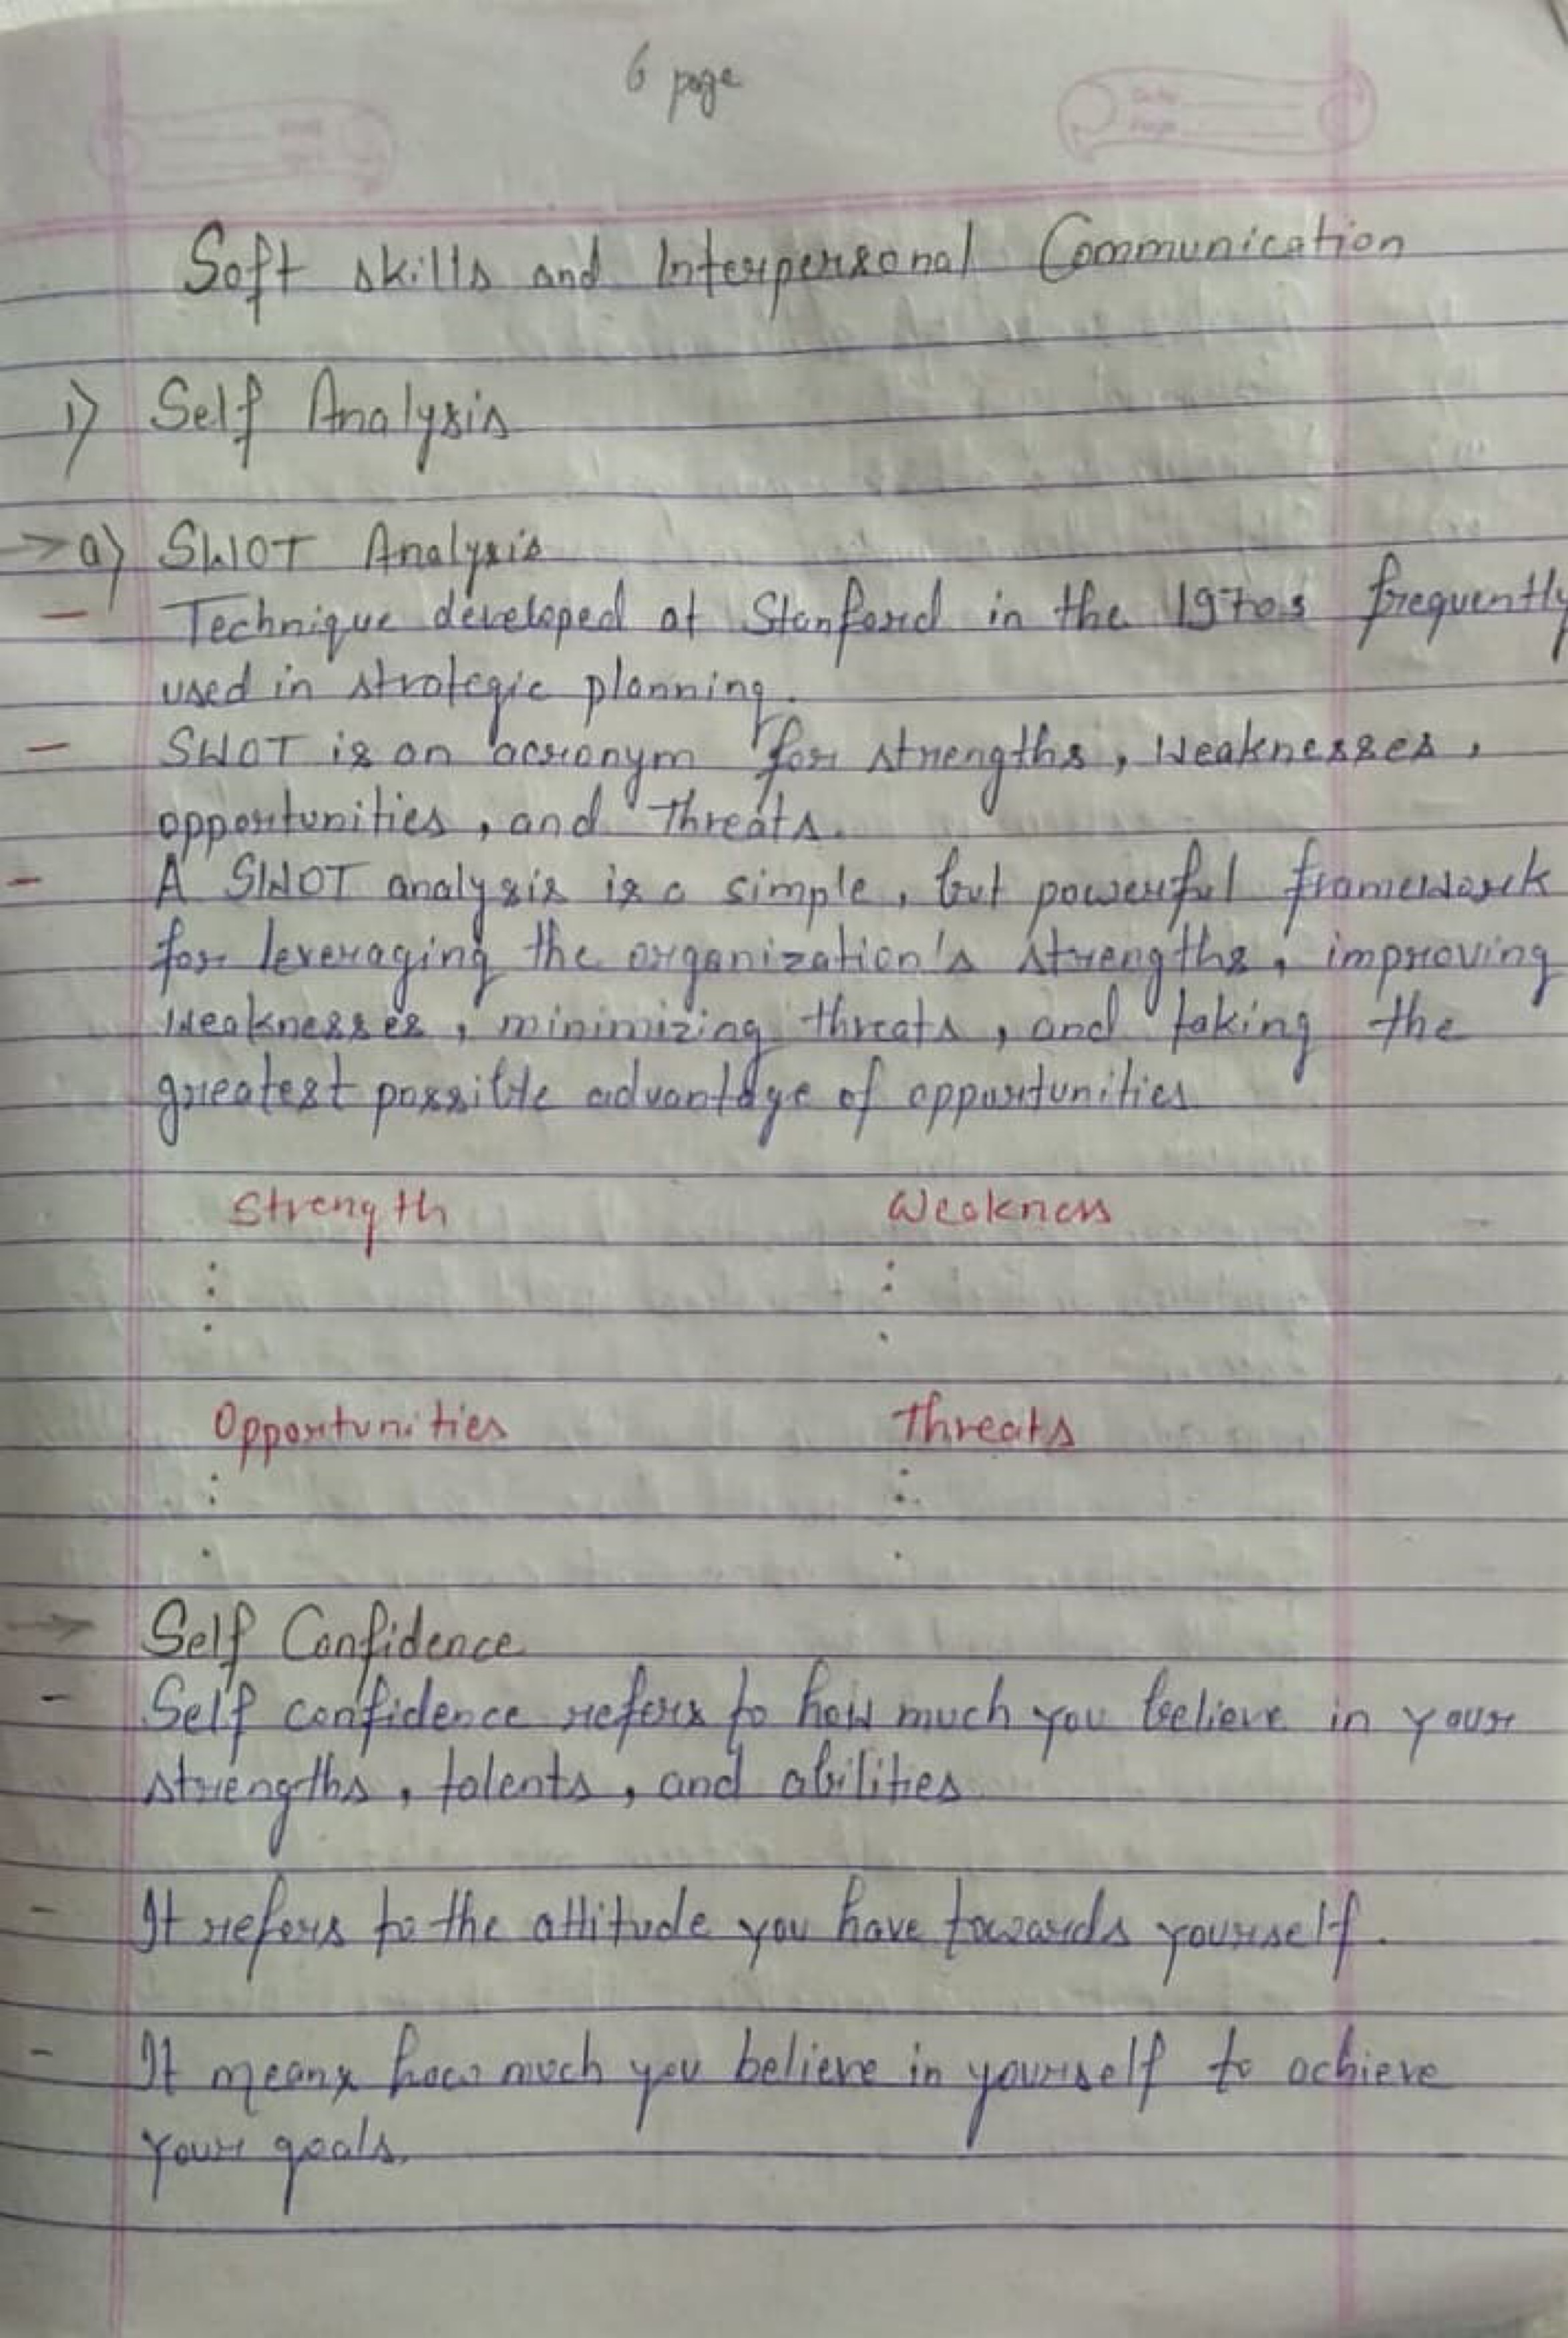 6 page
Date
Page
Soft skills and Interpersonal Communication
1) Self Analysis
→ a) SWOT Analysis
- Technique developed at Stanford in the 1970s frequently
used in strategic planning.
- SWOT is an acronym for strengths, weaknesses,
opportunities, and threats.
- A SWOT analysis is a simple, but powerful framework
for leveraging the organization's strengths, improving
weaknesses, minimizing threats, and taking the
greatest possible advantage of opportunities
Strength Weakness
Opportunities Threats
→ Self Confidence
- Self confidence refers to how much you believe in your
strengths, talents, and abilities
- It refers to the attitude you have towards yourself.
- It means how much you believe in yourself to achieve
your goals.